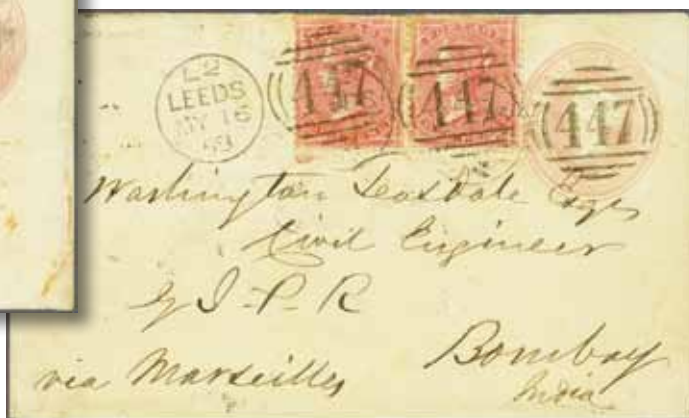 L2
LEEDS
MY 16
59
447
447
447
Washington Teasdale Esqr
Civil Engineer
G I. P. R
Bombay
via Marseilles
India